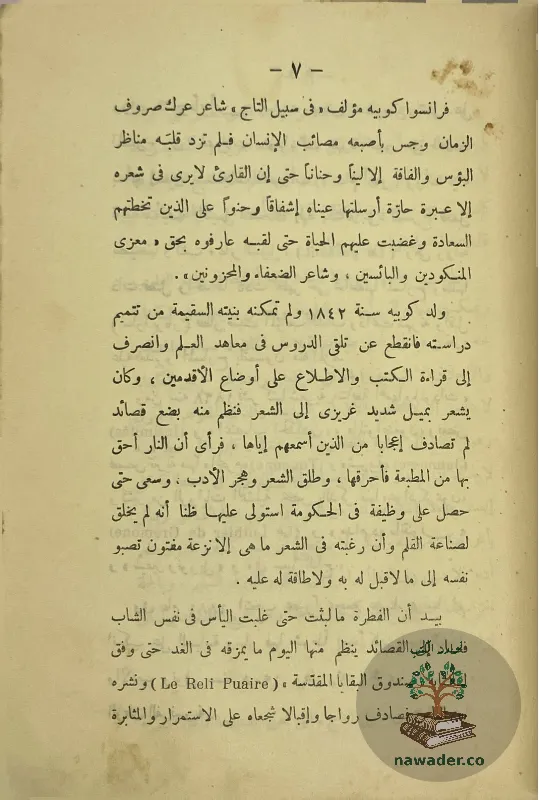 — ٧ —
فرانسوا كوبيه مؤلف « فى سبيل التاج » شاعر عرك صروف
الزمان وجس بأصبعه مصائب الإنسان فلم تزد قلبَه مناظر
البؤس والفاقة إلا ليناً وحناناً حتى إن القارئ لايرى فى شعره
إلا عبرة حارّة أرسلتها عيناه إشفاقاً وحنوّاً على الذين تخطتهم
السعادة وغضبت عليهم الحياة حتى لقبه عارفوه بحق « معزى
المنكودين والبائسين ، وشاعر الضعفاء والمحزونين » .
ولد كوبيه سنة ١٨٤٢ ولم تمكنه بنيته السقيمة من تتميم
دراسته فانقطع عن تلقى الدروس فى معاهد العلم وانصرف
إلى قراءة الكتب والاطلاع على أوضاع الأقدمين ، وكان
يشعر بميل شديد غريزى إلى الشعر فنظم منه بضع قصائد
لم تصادف إعجابا من الذين أسمعهم إياها ، فرأى أن النار أحق
بها من المطبعة فأحرقها ، وطلق الشعر وهجر الأدب ، وسعى حتى
حصل على وظيفة فى الحكومة استولى عليها ظنا أنه لم يخلق
لصناعة القلم وأن رغبته فى الشعر ما هى إلا نزعة مفتون تصبو
نفسه إلى ما لاقبل له به ولاطاقة له عليه .
بيد أن الفطرة ما لبثت حتى غلبت اليأس فى نفس الشاب
القصائد ينظم منها اليوم ما يمزقه فى الغد حتى وفق
صندوق البقايا المقدّسة » (Le Reli Puaire) ونشره
فصادف رواجا وإقبالا شجعاه على الاستمرار والمثابرة
nawader.co